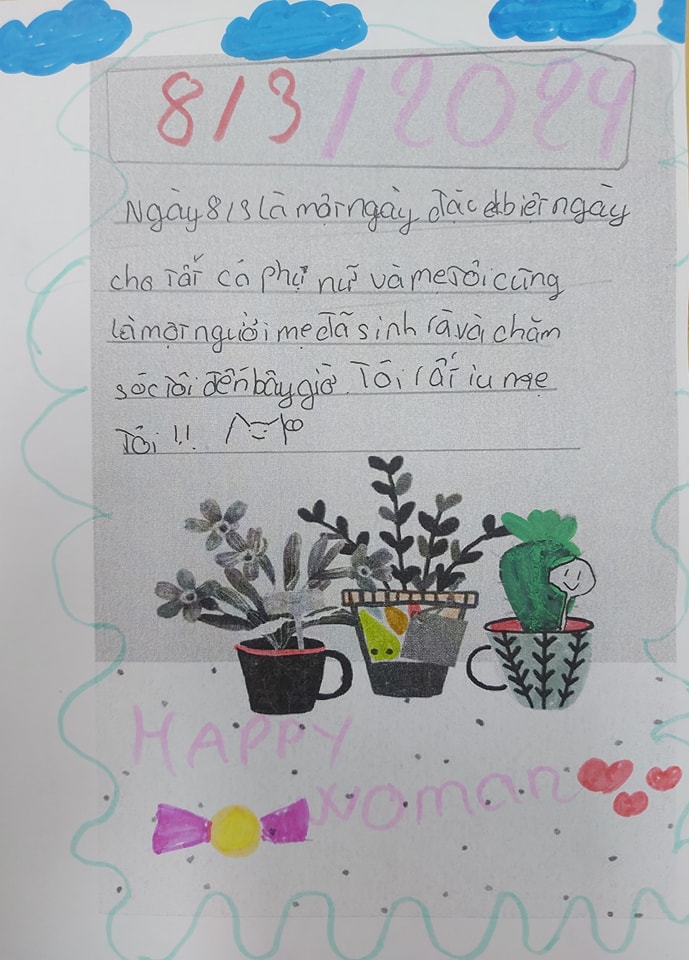 8/3/2024
Ngày 8/3 là một ngày đặc biệt ngày
cho tất cả phụ nữ và mẹ tôi cũng
là một người mẹ đã sinh ra và chăm
sóc tôi đến bây giờ. Tôi rất iu mẹ
Tôi !!
HAPPY
woman